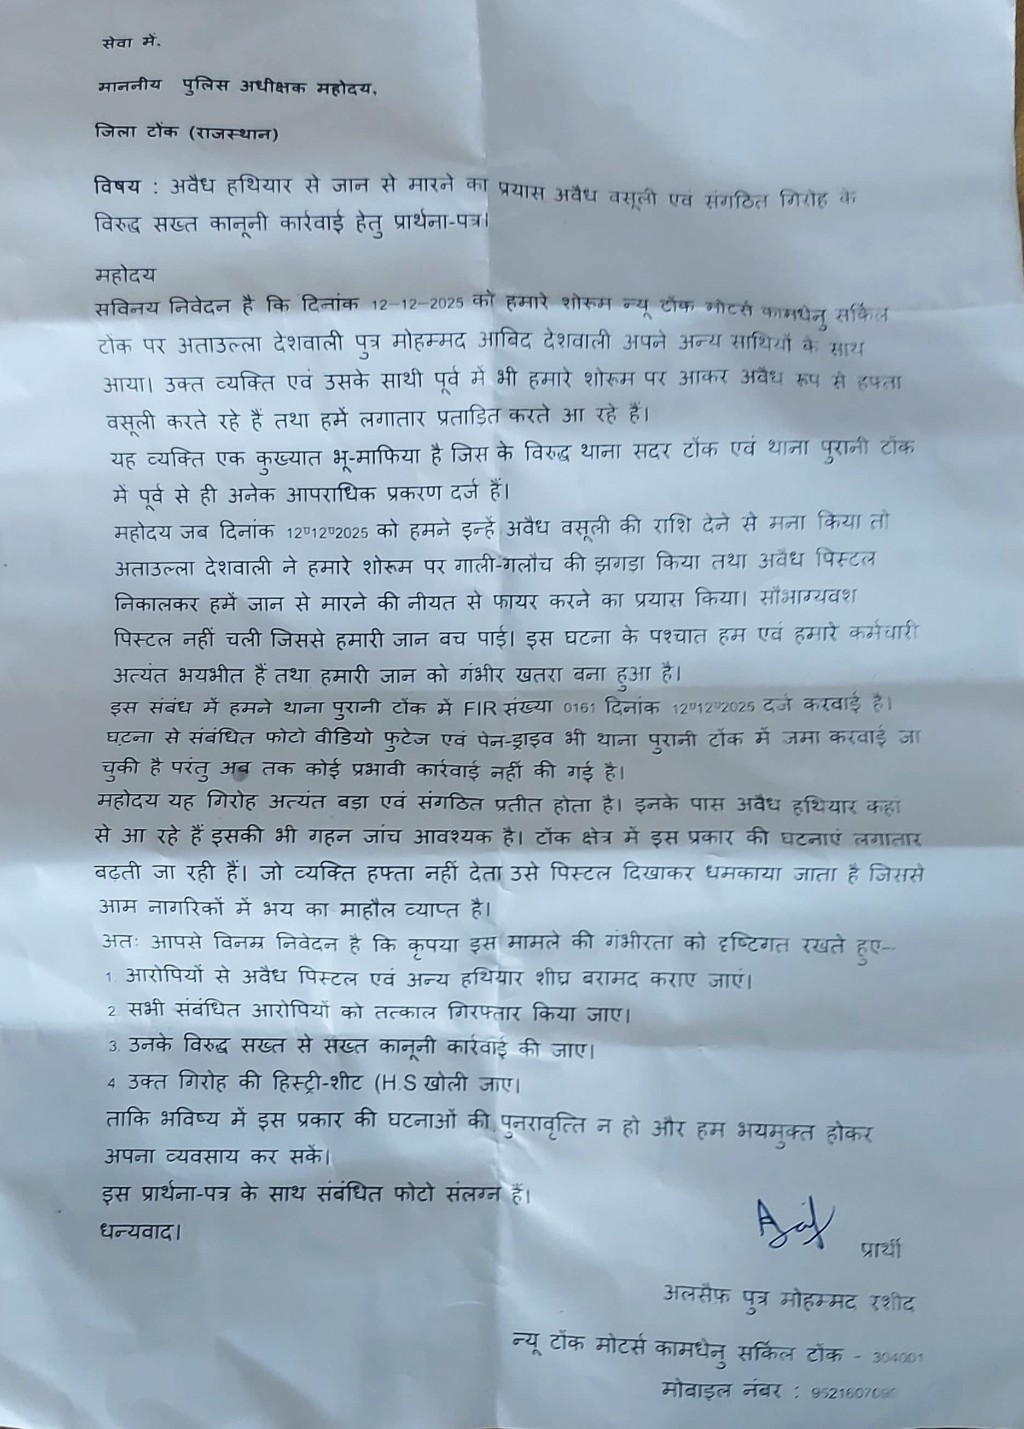 सेवा में.
माननीय पुलिस अधीक्षक महोदय,
जिला टोंक (राजस्थान)
विषय : अवैध हथियार से जान से मारने का प्रयास अवैध वसूली एवं संगठित गिरोह के
विरुद्ध सख्त कानूनी कार्रवाई हेतु प्रार्थना-पत्र।
महोदय
सविनय निवेदन है कि दिनांक 12-12-2025 को हमारे शोरूम न्यू टोंक मोटर्स कामधेनु सर्किल
टोंक पर अताउल्ला देशवाली पुत्र मोहम्मद आबिद देशवाली अपने अन्य साथियों के साथ
आया। उक्त व्यक्ति एवं उसके साथी पूर्व में भी हमारे शोरूम पर आकर अवैध रूप से हफ्ता
वसूली करते रहे हैं तथा हमें लगातार प्रताड़ित करते आ रहे हैं।
यह व्यक्ति एक कुख्यात भू-माफिया है जिस के विरुद्ध थाना सदर टोंक एवं थाना पुरानी टोंक
में पूर्व से ही अनेक आपराधिक प्रकरण दर्ज हैं।
महोदय जब दिनांक 12º12º2025 को हमने इन्हें अवैध वसूली की राशि देने से मना किया तो
अताउल्ला देशवाली ने हमारे शोरूम पर गाली-गलौच की झगड़ा किया तथा अवैध पिस्टल
निकालकर हमें जान से मारने की नीयत से फायर करने का प्रयास किया। सौभाग्यवश
पिस्टल नहीं चली जिससे हमारी जान बच पाई। इस घटना के पश्चात हम एवं हमारे कर्मचारी
अत्यंत भयभीत हैं तथा हमारी जान को गंभीर खतरा बना हुआ है।
इस संबंध में हमने थाना पुरानी टोंक में FIR संख्या 0161 दिनांक 12º12º2025 दर्ज करवाई है।
घटना से संबंधित फोटो वीडियो फुटेज एवं पेन-ड्राइव भी थाना पुरानी टोंक में जमा करवाई जा
चुकी है परंतु अब तक कोई प्रभावी कार्रवाई नहीं की गई है।
महोदय यह गिरोह अत्यंत बड़ा एवं संगठित प्रतीत होता है। इनके पास अवैध हथियार कहां
से आ रहे हैं इसकी भी गहन जांच आवश्यक है। टोंक क्षेत्र में इस प्रकार की घटनाएं लगातार
बढ़ती जा रही हैं। जो व्यक्ति हफ्ता नहीं देता उसे पिस्टल दिखाकर धमकाया जाता है जिससे
आम नागरिकों में भय का माहौल व्याप्त है।
अतः आपसे विनम्र निवेदन है कि कृपया इस मामले की गंभीरता को दृष्टिगत रखते हुए--
1. आरोपियों से अवैध पिस्टल एवं अन्य हथियार शीघ्र बरामद कराए जाएं।
2. सभी संबंधित आरोपियों को तत्काल गिरफ्तार किया जाए।
3. उनके विरुद्ध सख्त से सख्त कानूनी कार्रवाई की जाए।
4 उक्त गिरोह की हिस्ट्री-शीट (H.S खोली जाए।
ताकि भविष्य में इस प्रकार की घटनाओं की पुनरावृत्ति न हो और हम भयमुक्त होकर
अपना व्यवसाय कर सकें।
इस प्रार्थना-पत्र के साथ संबंधित फोटो संलग्न हैं।
धन्यवाद।
प्रार्थी
अलसैफ पुत्र मोहम्मद रशीद
न्यू टोंक मोटर्स कामधेनु सर्किल टोंक - 304001
मोबाइल नंबर :